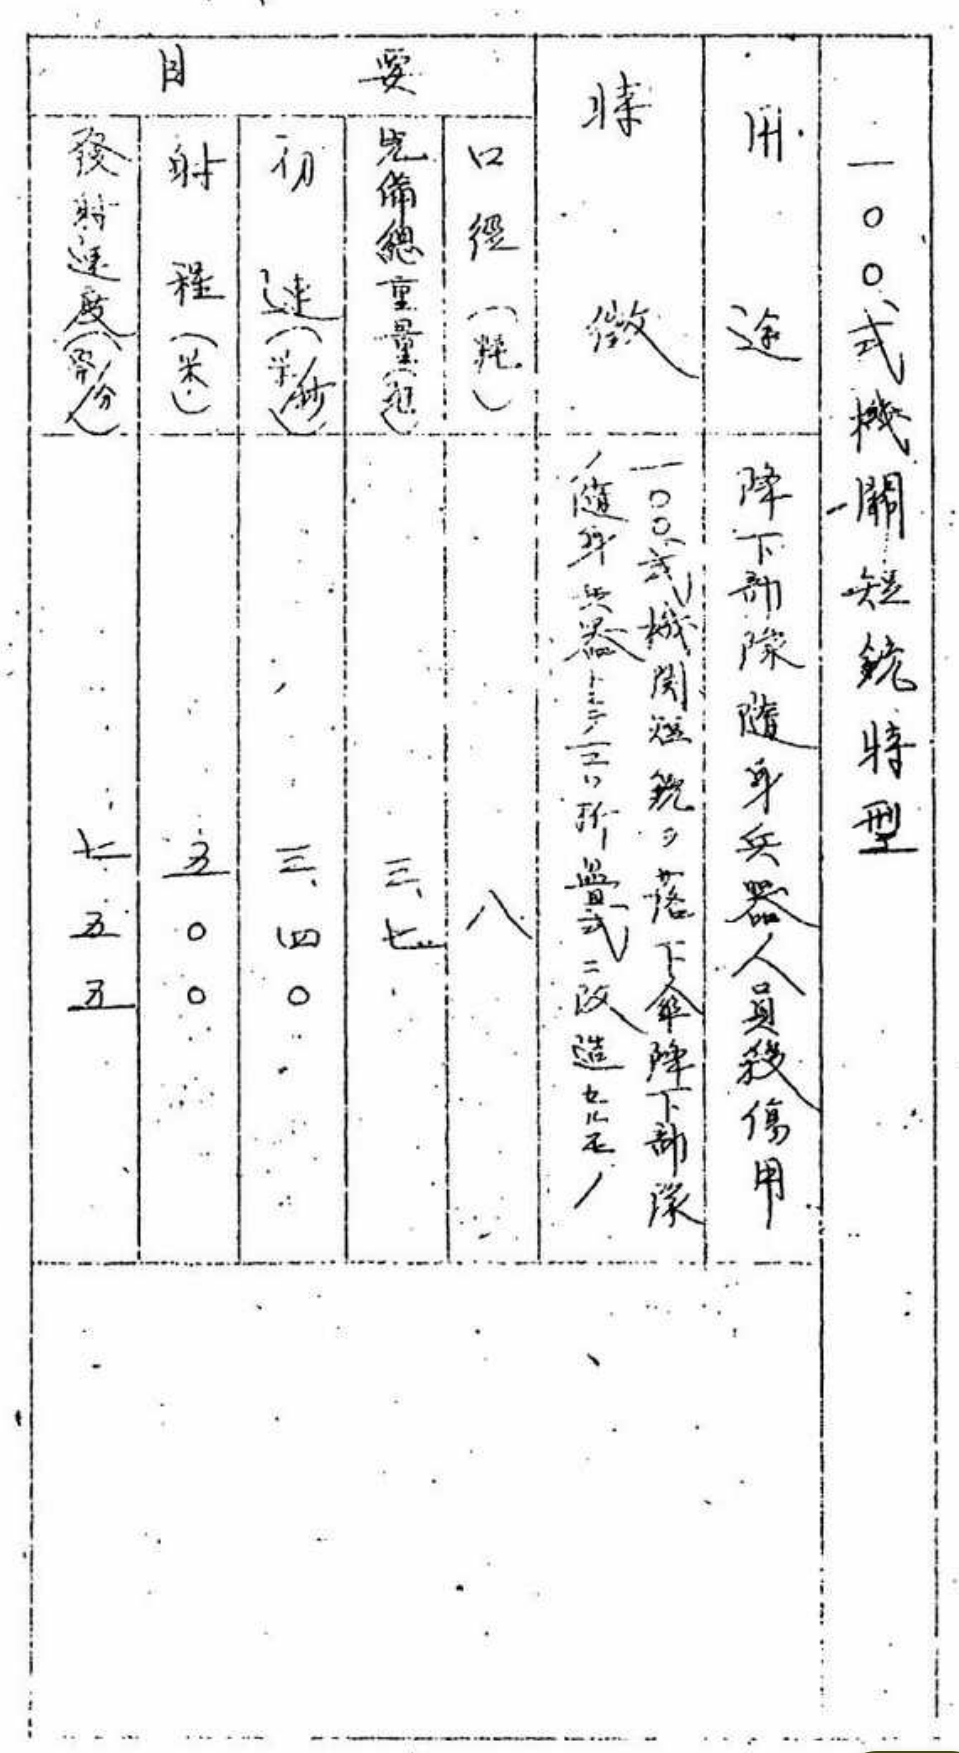 一〇〇式機關短銃特型
用途
降下部隊隨身兵器人員殺傷用
特徴
一〇〇式機関短銃ヲ落下傘降下部隊
ノ隨身兵器トシテ二ツ折疊式ニ改造セルモノ
要目
口径(粍)
八
完備總重量(瓩)
三、七
初速(米/秒)
三、四〇
射程(米)
五〇〇
發射速度(發/分)
七五五